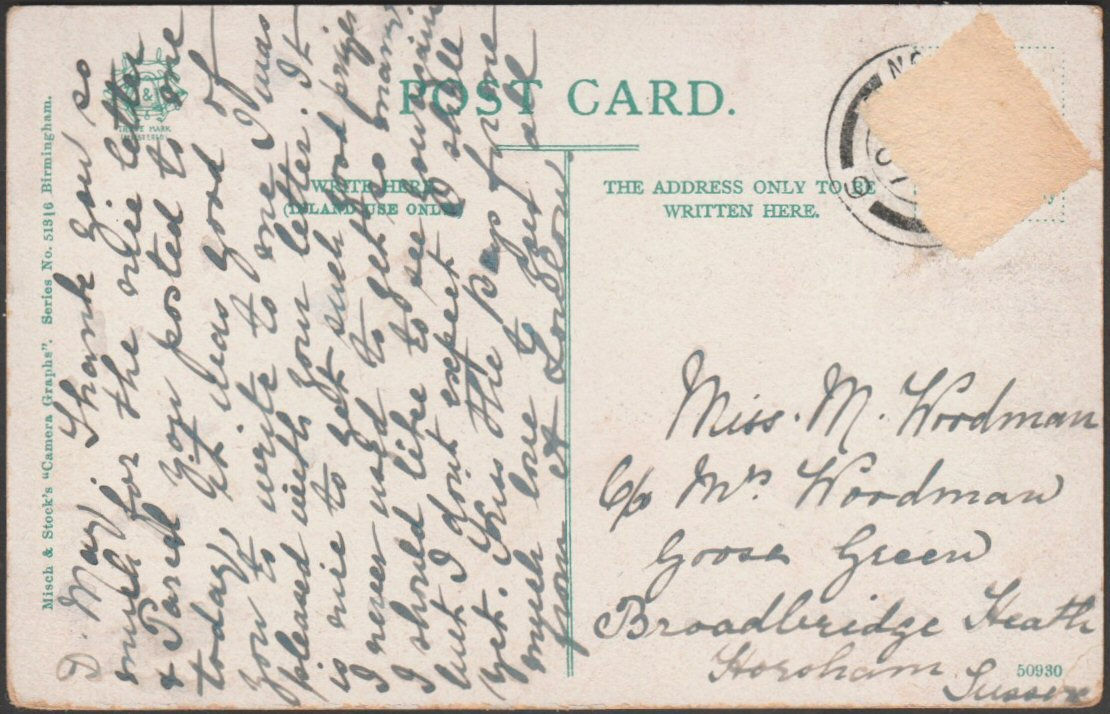 Misch & Stock's "Camera Graphs". Series No. 51316 Birmingham.
&
TRADE MARK
POST CARD.
WRITE HERE
(INLAND USE ONLY)
THE ADDRESS ONLY TO BE
WRITTEN HERE.
D. May, Thank you so
much for the nice letter
& Parcel you posted to me
today, it was good of
you to write to me I was
pleased with your letter. It
is nice to get such good prizes
I never used to get so many
I should like to see you again
but I dont expect I shall
yet. Kiss the for me
much love to Gut all
from A
Miss. M. Woodman
C/o Mrs Woodman
Goose Green
Broadbridge Heath
Horsham
Sussex
50930
NO
07
9